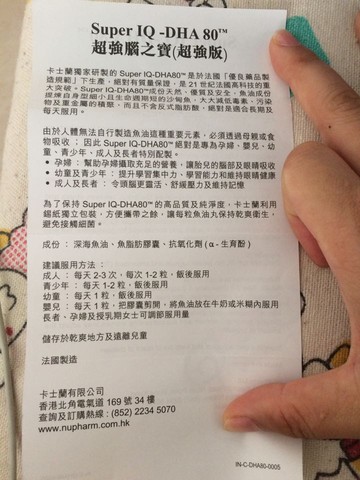 Super IQ -DHA 80™
超強腦之寶(超強版)
卡士蘭獨家研製的 Super IQ-DHA80™ 是於法國「優良藥品製
造規範」下生產，絕對有質量保證，是 21 世紀法國高科技的重
大突破。Super IQ-DHA80™成份天然、優質及安全。魚油成份
提煉自身型細小且生命週期短的沙甸魚，大大減低毒素、污染
物及重金屬的積聚，而且不含反式脂肪酸，絕對是適合長期及
每天服用。
由於人體無法自行製造魚油這種重要元素，必須透過母親或食
物吸收；因此 Super IQ-DHA80™ 絕對是專為孕婦、嬰兒、幼
童、青少年、成人及長者特別配製。
• 孕婦： 幫助孕婦攝取充足的營養，讓胎兒的腦部及眼睛吸收
• 幼童及青少年： 提升學習集中力、學習能力和維持眼睛健康
• 成人及長者： 令頭腦更靈活、舒緩壓力及維持記憶
為了保持 Super IQ-DHA80™ 的高品質及純淨度，卡士蘭利用
錫紙獨立包裝，方便攜帶之餘，讓每粒魚油九保持乾爽衛生，
避免接觸細菌。
成份： 深海魚油、魚脂肪膠囊、抗氧化劑 ( α - 生育酚 )
建議服用方法：
成人 ： 每天 2-3 次，每次 1-2 粒，飯後服用
青少年 ： 每天 1-2 粒，飯後服用
幼童 ： 每天 1 粒，飯後服用
嬰兒 ： 每天 1 粒，把膠囊剪開，將魚油放在牛奶或米糊內服用
長者、孕婦及授乳期女士可調節服用量
儲存於乾爽地方及遠離兒童
法國製造
卡士蘭有限公司
香港北角電氣道 169 號 34 樓
查詢及訂購熱線 : (852) 2234 5070
www.nupharm.com.hk
IN-C-DHA80-0005